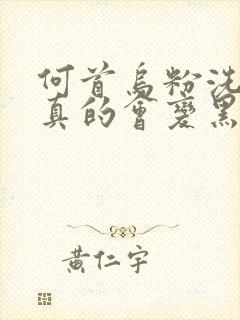 何首烏粉洗
真的會變黑
黃仁宇